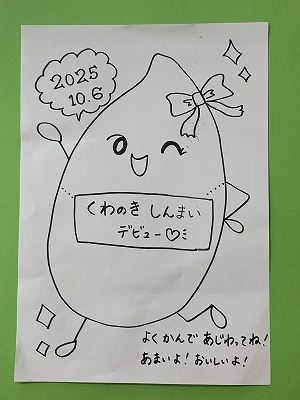 2025
10.6
くわのき しんまい
デビュー♡
よく かんで あじわってね!
あまいよ! おいしいよ!